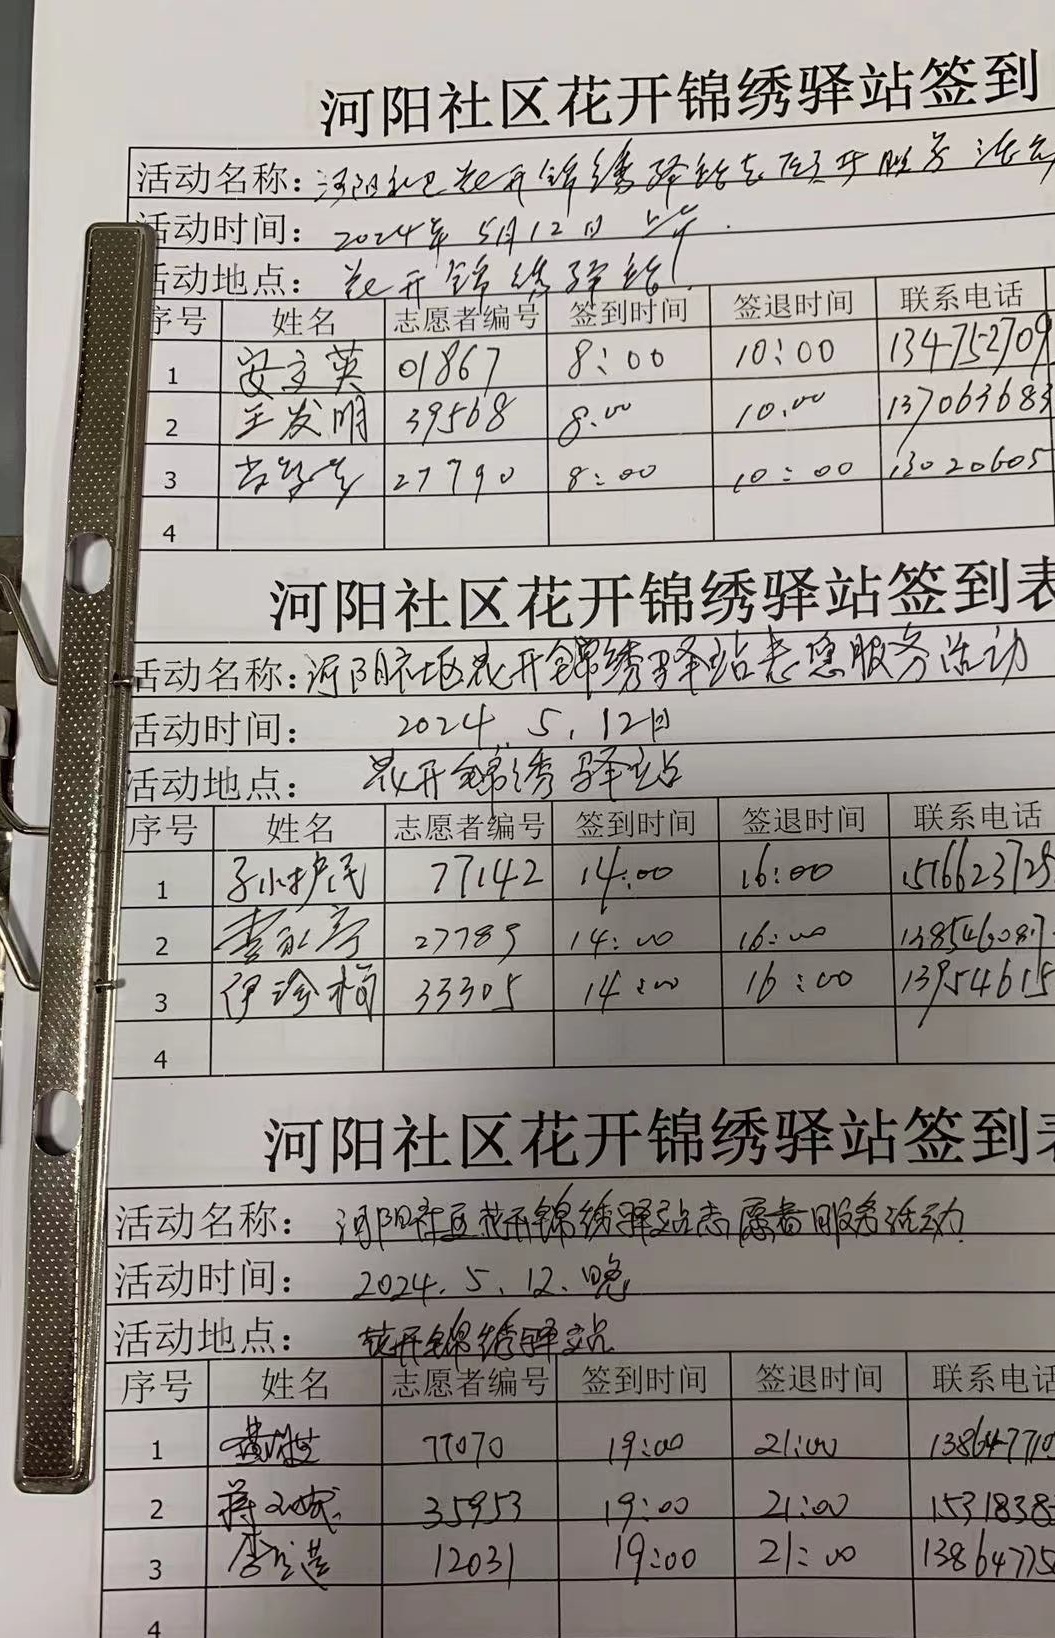 河阳社区花开锦绣驿站签到
活动名称：河阳社区花开锦绣驿站志愿服务活动
活动时间：2024年5月12日 上午.
活动地点：花开锦绣驿站
序号 姓名 志愿者编号 签到时间 签退时间 联系电话
1 安立英 01867 8:00 10:00 134752709
2 王发明 39568 8.00 10.00 137063683
3 27790 8:00 10:00 13020605
4
河阳社区花开锦绣驿站签到表
活动名称：河阳社区花开锦绣驿站志愿服务活动
活动时间： 2024.5.12日
活动地点： 花开锦绣驿站
序号 姓名 志愿者编号 签到时间 签退时间 联系电话
1 77142 14:00 16:00 1516623725
2 27789 14:00 16:00 138546087
3 伊珍梅 33305 14:00 16:00 13954615
4
河阳社区花开锦绣驿站签到表
活动名称： 河阳社区花开锦绣驿站志愿者服务活动
活动时间： 2024.5.12.晚
活动地点： 花开锦绣驿站
序号 姓名 志愿者编号 签到时间 签退时间 联系电话
1 77070 19:00 21:00 138647710
2 35953 19:00 21:00 1531838
3 12031 19:00 21:00 13864775
4